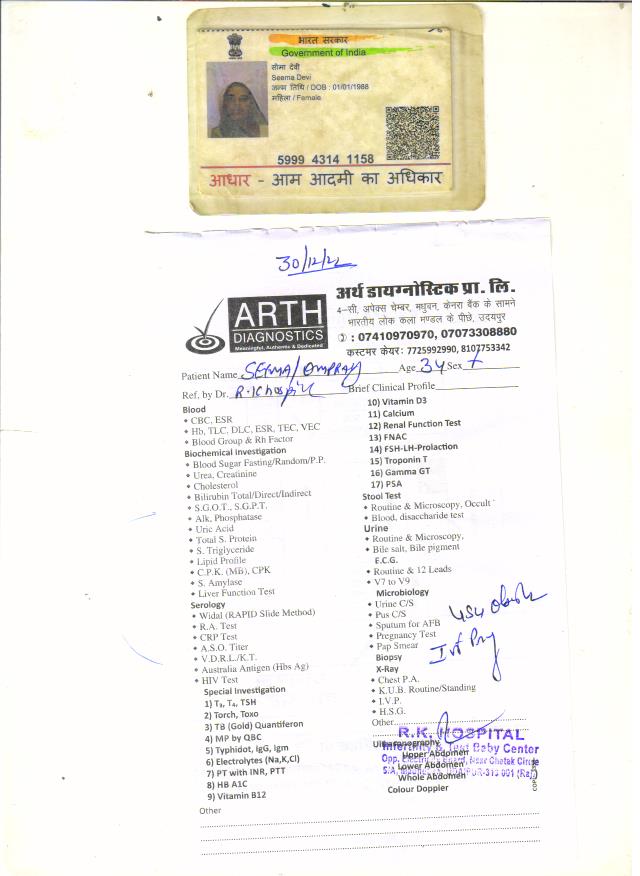 भारत सरकार
Government of India
सीमा देवी
Seema Devi
जन्म तिथि / DOB : 01/01/1988
महिला / Female
5999 4314 1158
आधार - आम आदमी का अधिकार
30/12/22
ARTH
DIAGNOSTICS
Meaningful, Authentic & Dedicated
अर्थ डायग्नोस्टिक प्रा. लि.
4-सी, अपेक्स चेम्बर, मधुवन, केनरा बैंक के सामने
भारतीय लोक कला मण्डल के पीछे, उदयपुर
: 07410970970, 07073308880
कस्टमर केयर: 7725992990, 8107753342
Patient Name SEEMA / Age 34 Sex
Ref. by Dr. R.K hospital Brief Clinical Profile
Blood
CBC, ESR
Hb, TLC, DLC, ESR, TEC, VEC
Blood Group & Rh Factor
Biochemical Investigation
Blood Sugar Fasting/Random/P.P.
Urea, Creatinine
Cholesterol
Bilirubin Total/Direct/Indirect
S.G.O.T., S.G.P.T.
Alk, Phosphatase
Uric Acid
Total S. Protein
S. Triglyceride
Lipid Profile
C.P.K. (MB), CPK
S. Amylase
Liver Function Test
Serology
Widal (RAPID Slide Method)
R.A. Test
CRP Test
A.S.O. Titer
V.D.R.L./K.T.
Australia Antigen (Hbs Ag)
HIV Test
Special Investigation
1) T3, T4, TSH
2) Torch, Toxo
3) TB (Gold) Quantiferon
4) MP by QBC
5) Typhidot, IgG, Igm
6) Electrolytes (Na,K,Cl)
7) PT with INR, PTT
8) HB A1C
9) Vitamin B12
Other
10) Vitamin D3
11) Calcium
12) Renal Function Test
13) FNAC
14) FSH-LH-Prolaction
15) Troponin T
16) Gamma GT
17) PSA
Stool Test
Routine & Microscopy, Occult
Blood, disaccharide test
Urine
Routine & Microscopy,
Bile salt, Bile pigment
E.C.G.
Routine & 12 Leads
V7 to V9
Microbiology
Urine C/S
Pus C/S
Sputum for AFB
Pregnancy Test
Pap Smear
Biopsy
X-Ray
Chest P.A.
K.U.B. Routine/Standing
I.V.P.
H.S.G.
Other
Ultrasonography
Upper Abdomen
Lower Abdomen
Whole Abdomen
Colour Doppler
R.K. HOSPITAL
Infertility & Test Baby Center
Opp. Board, Near Chetak Circle
5/A, UDAIPUR-313 001 (Raj)